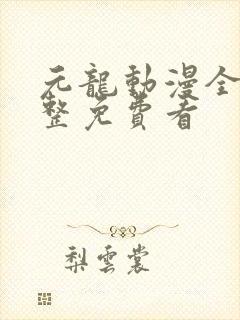 元龍動漫全
整免費看
梨雲裳